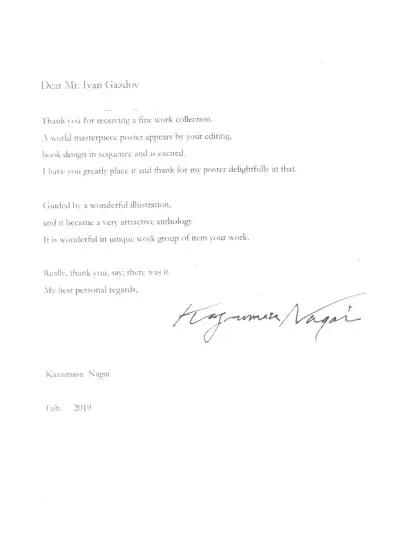 Dear Mr. Ivan Gazdov
Thank you for receiving a fine work collection.
A world masterpiece poster appears by your editing,
book design in sequence and is excited.
I have you greatly place it and thank for my poster delightfully in that.
Guided by a wonderful illustration,
and it became a very attractive anthology.
It is wonderful in unique work group of item your work.
Really, thank you, say; there was it.
My best personal regards,
Kazumasa Nagai
Kazumasa Nagai
Feb. 2019